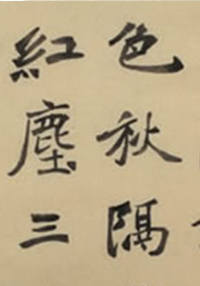 色秋隔
紅塵三